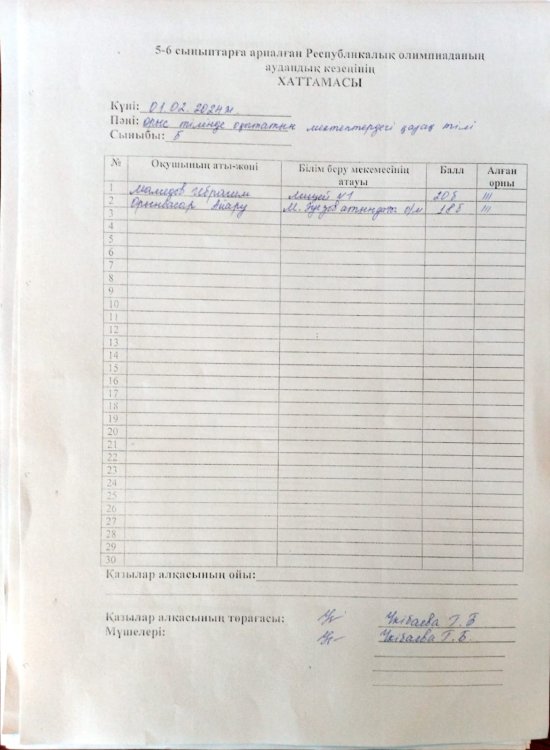 5-6 сыныптарға арналған Республикалық олимпиаданың
аудандық кезеңінің
ХАТТАМАСЫ
Күні: 01.02.2024ж
Пәні: орыс тілінде оқытатын мектептердегі қазақ тілі
Сыныбы: 5
№ Оқушының аты-жөні Білім беру мекемесінің атауы Балл Алған орны
1 Мамедов Ибрагим Лицей №1 20б III
2 Орынбасар Айару М. атындағы о/м 18б III
3
4
5
6
7
8
9
10
11
12
13
14
15
16
17
18
19
20
21
22
23
24
25
26
27
28
29
30
Қазылар алқасының ойы:
Қазылар алқасының төрағасы: Укибаева Г. Б
Мүшелері: Укибаева Г. Б.